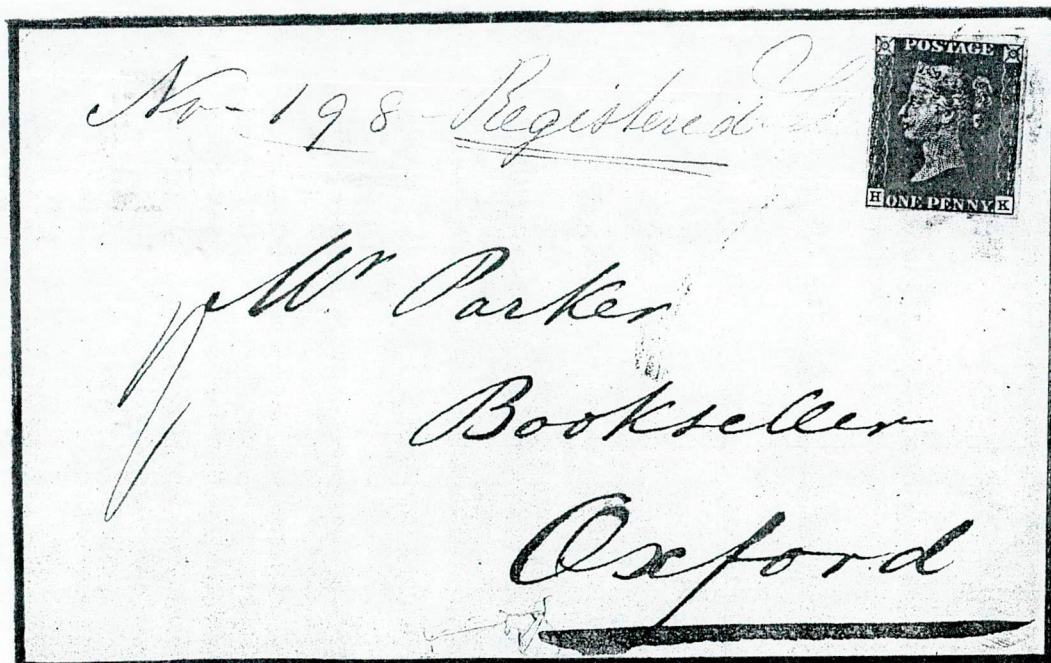 No - 198 - Registered
POSTAGE
H ONE PENNY K
Mr Parker
Bookseller
Oxford